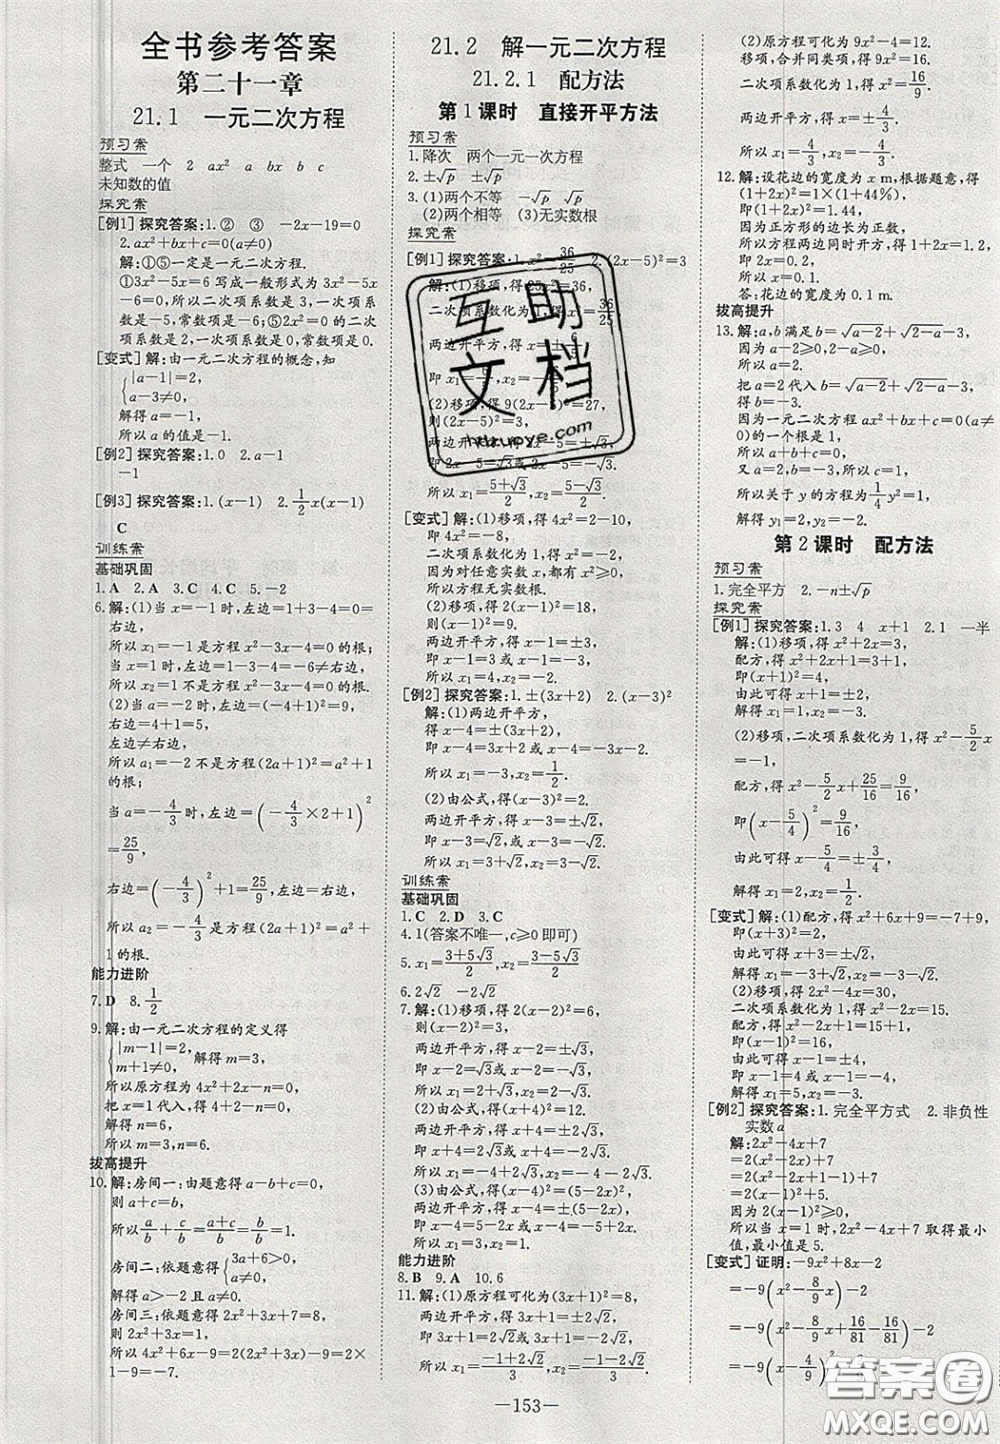 全书参考答案
第二十一章
21.1 一元二次方程
预习案
整式 一个 2 ax² a bx b c
未知数的值
探究案
[例1] 探究答案:1.② ③ -2x-19=0
2.ax²+bx+c=0(a≠0)
解:①⑤一定是一元二次方程.
①3x²-5x=6 写成一般形式为3x²-5x
-6=0,所以二次项系数是3,一次项系
数是-5,常数项是-6;⑤2x²=0的二次
项系数是2,一次项系数是0,常数项是0.
[变式] 解:由一元二次方程的概念,知
|a-1|=2,
a-3≠0.
解得a=-1.
所以a的值是-1.
[例2] 探究答案:1.0 2.a-1
-1
[例3] 探究答案:1.(x-1) 2.1/2x(x-1)
C
训练案
基础巩固
1.A 2.A 3.C 4.C 5.-2
6.解:(1)当x=-1时,左边=1+3-4=0=
右边,
所以x₁=-1是方程x²-3x-4=0的根;
当x=1时,左边=1-3-4=-6≠0=右边,
所以x₂=1不是方程x²-3x-4=0的根.
(2)当a=-2时,左边=(-4+1)²=9;
右边=4+1=5;
左边≠右边,
所以a₁=-2不是方程(2a+1)²=a²+1
的根;
当a=-4/3时,左边=(-4/3×2+1)²
=25/9,
右边=(-4/3)²+1=25/9,左边=右边,
所以a₂=-4/3是方程(2a+1)²=a²+
1的根.
能力进阶
7.D 8.1/2
9.解:由一元二次方程的定义得
|m-1|=2,
m+1≠0, 解得m=3,
所以原方程为4x²+2x-n=0,
把x=1代入,得4+2-n=0,
解得n=6,
所以m=3,n=6.
拔高提升
10.解:房间一:由题意得a-b+c=0,
则a+c=b,
所以a/b+c/b=(a+c)/b=b/b=1.
房间二:依题意得 3a+6>0,
a≠0,
解得a>-2且a≠0.
房间三:依题意得2x²+3x+7=8,
则2x²+3x=1,
所以4x²+6x-9=2(2x²+3x)-9=2×
1-9=-7.
21.2 解一元二次方程
21.2.1 配方法
第1课时 直接开平方法
预习案
1.降次 两个一元一次方程
2.±√p ±√p
3.(1)两个不等 -√p √p
(2)两个相等 (3)无实数根
探究案
[例1] 探究答案:1.x²=36/25 2.(2x-5)²=3
解:(1)移项,得25x²=36,
二次项系数化为1,得x²=36/25
两边开平方,得x=±
即x₁= ,x₂=
(2)移项,得9(2x-5)²=27,
则(2x-5)²=3,
两边开平方,得2x-5=±√3,
即2x-5=√3或2x-5=-√3,
所以x₁=(5+√3)/2,x₂=(5-√3)/2.
[变式] 解:(1)移项,得4x²=2-10,
即4x²=-8,
二次项系数化为1,得x²=-2,
因为对任意实数x,都有x²≥0,
所以方程无实数根.
(2)移项,得2(x-1)²=18,
则(x-1)²=9,
两边开平方,得x-1=±3,
即x-1=3或x-1=-3,
所以x₁=4,x₂=-2.
[例2] 探究答案:1.±(3x+2) 2.(x-3)²
解:(1)两边开平方,
得x-4=±(3x+2),
即x-4=3x+2或x-4=-3x-2,
所以x₁=-3,x₂=1/2.
(2)由公式,得(x-3)²=2,
两边开平方,得x-3=±√2,
即x-3=√2或x-3=-√2,
所以x₁=3+√2,x₂=3-√2.
训练案
基础巩固
1.C 2.D 3.C
4.1(答案不唯一,c≥0即可)
5.x₁=(3+5√3)/3,x₂=(3-5√3)/3
6.2√2 -2√2
7.解:(1)移项,得2(x-2)²=6,
则(x-2)²=3,
两边开平方,得x-2=±√3,
即x-2=√3或x-2=-√3,
所以x₁=2+√3,x₂=2-√3.
(2)由公式,得(x+4)²=8,
两边开平方,得x+4=±2√2,
即x+4=2√2或x+4=-2√2,
所以x₁=-4+2√2,x₂=-4-2√2.
(3)由公式,得(x-4)²=(5-2x)²,
两边开平方,得x-4=±(5-2x),
即x-4=5-2x或x-4=-(5-2x),
所以x₁=3,x₂=1.
能力进阶
8.B 9.A 10.6
11.解:(1)原方程可化为(1+3x)²=8,
两边开平方,得1+3x=±2√2,
即1+3x=2√2或1+3x=-2√2,
所以x₁=(-1+2√2)/3,x₂=(-1-2√2)/3.
(2)原方程可化为9x²-4=12.
移项,合并同类项,得9x²=16.
二次项系数化为1,得x²=16/9.
两边开平方,得x=±4/3,
所以x₁=4/3,x₂=-4/3.
12.解:设花边的宽度为x m,根据题意,得
(1+2x)²=1×(1+44%),
即(1+2x)²=1.44.
因为正方形的边长为正数,
所以方程两边同时开方,得1+2x=1.2,
即2x=0.2.
所以x=0.1.
答:花边的宽度为0.1 m.
拔高提升
13.解:a,b满足b=√(a-2)+√(2-a)-3,
因为a-2≥0,2-a≥0,
所以a=2.
把a=2代入b=√(a-2)+√(2-a)-3,
得b=-3.
因为一元二次方程ax²+bx+c=0(a≠0)
的一个根是1,
所以a+b+c=0.
又a=2,b=-3,所以c=1.
所以关于y的方程为1/4y²-1=0.
解得y₁=2,y₂=-2.
第2课时 配方法
预习案
1.完全平方 2.-n±√p
探究案
[例1] 探究答案:1.3 4 x+1 2.1 一半
解:(1)移项,得x²+2x=3,
配方,得x²+2x+1=3+1,
即(x+1)²=4,
由此可得x+1=±2,
解得x₁=1,x₂=-3.
(2)移项,二次项系数化为1,得x²-5/2x
=-1,
配方,得x²-5/2x+25/16=9/16,
即(x-5/4)²=9/16,
由此可得x-5/4=±3/4,
解得x₁=2,x₂=1/2.
[变式] 解:(1)配方,得x²+6x+9=-7+9,
即(x+3)²=2,
由此可得x+3=±√2,
解得x₁=-3+√2,x₂=-3-√2.
(2)移项,得2x²-4x=30,
二次项系数化为1,得x²-2x=15,
配方,得x²-2x+1=15+1,
即(x-1)²=16,
由此可得x-1=±4,
解得x₁=5,x₂=-3.
[例2] 探究答案:1.完全平方式 2.非负性
实数a
解:2x²-4x+7
=2(x²-2x)+7
=2(x²-2x+1-1)+7
=2(x-1)²+5.
因为2(x-1)²≥0,
所以当x=1时,2x²-4x+7取得最小
值,最小值是5.
[变式] 证明:-9x²+8x-2
=-9(x²-8/9x)-2
=-9(x²-8/9x+16/81-16/81)-2
=-9(x-4/9)²
—153—
互助
文档
答案圈
MXQE.COM